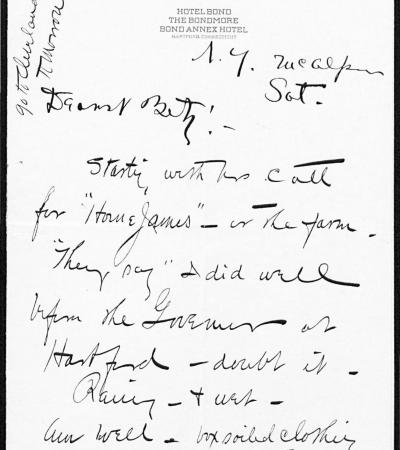 go to Cleveland
Tomorrow
HOTEL BOND
THE BONDMORE
BOND ANNEX HOTEL
HARTFORD, CONNECTICUT
N.Y. McAlpin
Sat.
Dearest Betty! -
Starting with his call
for "Home James" - or the farm -
"They say" I did well
before the Governor at
Hartford - doubt it -
Rainy - & wet -
Am well - box soiled clothing